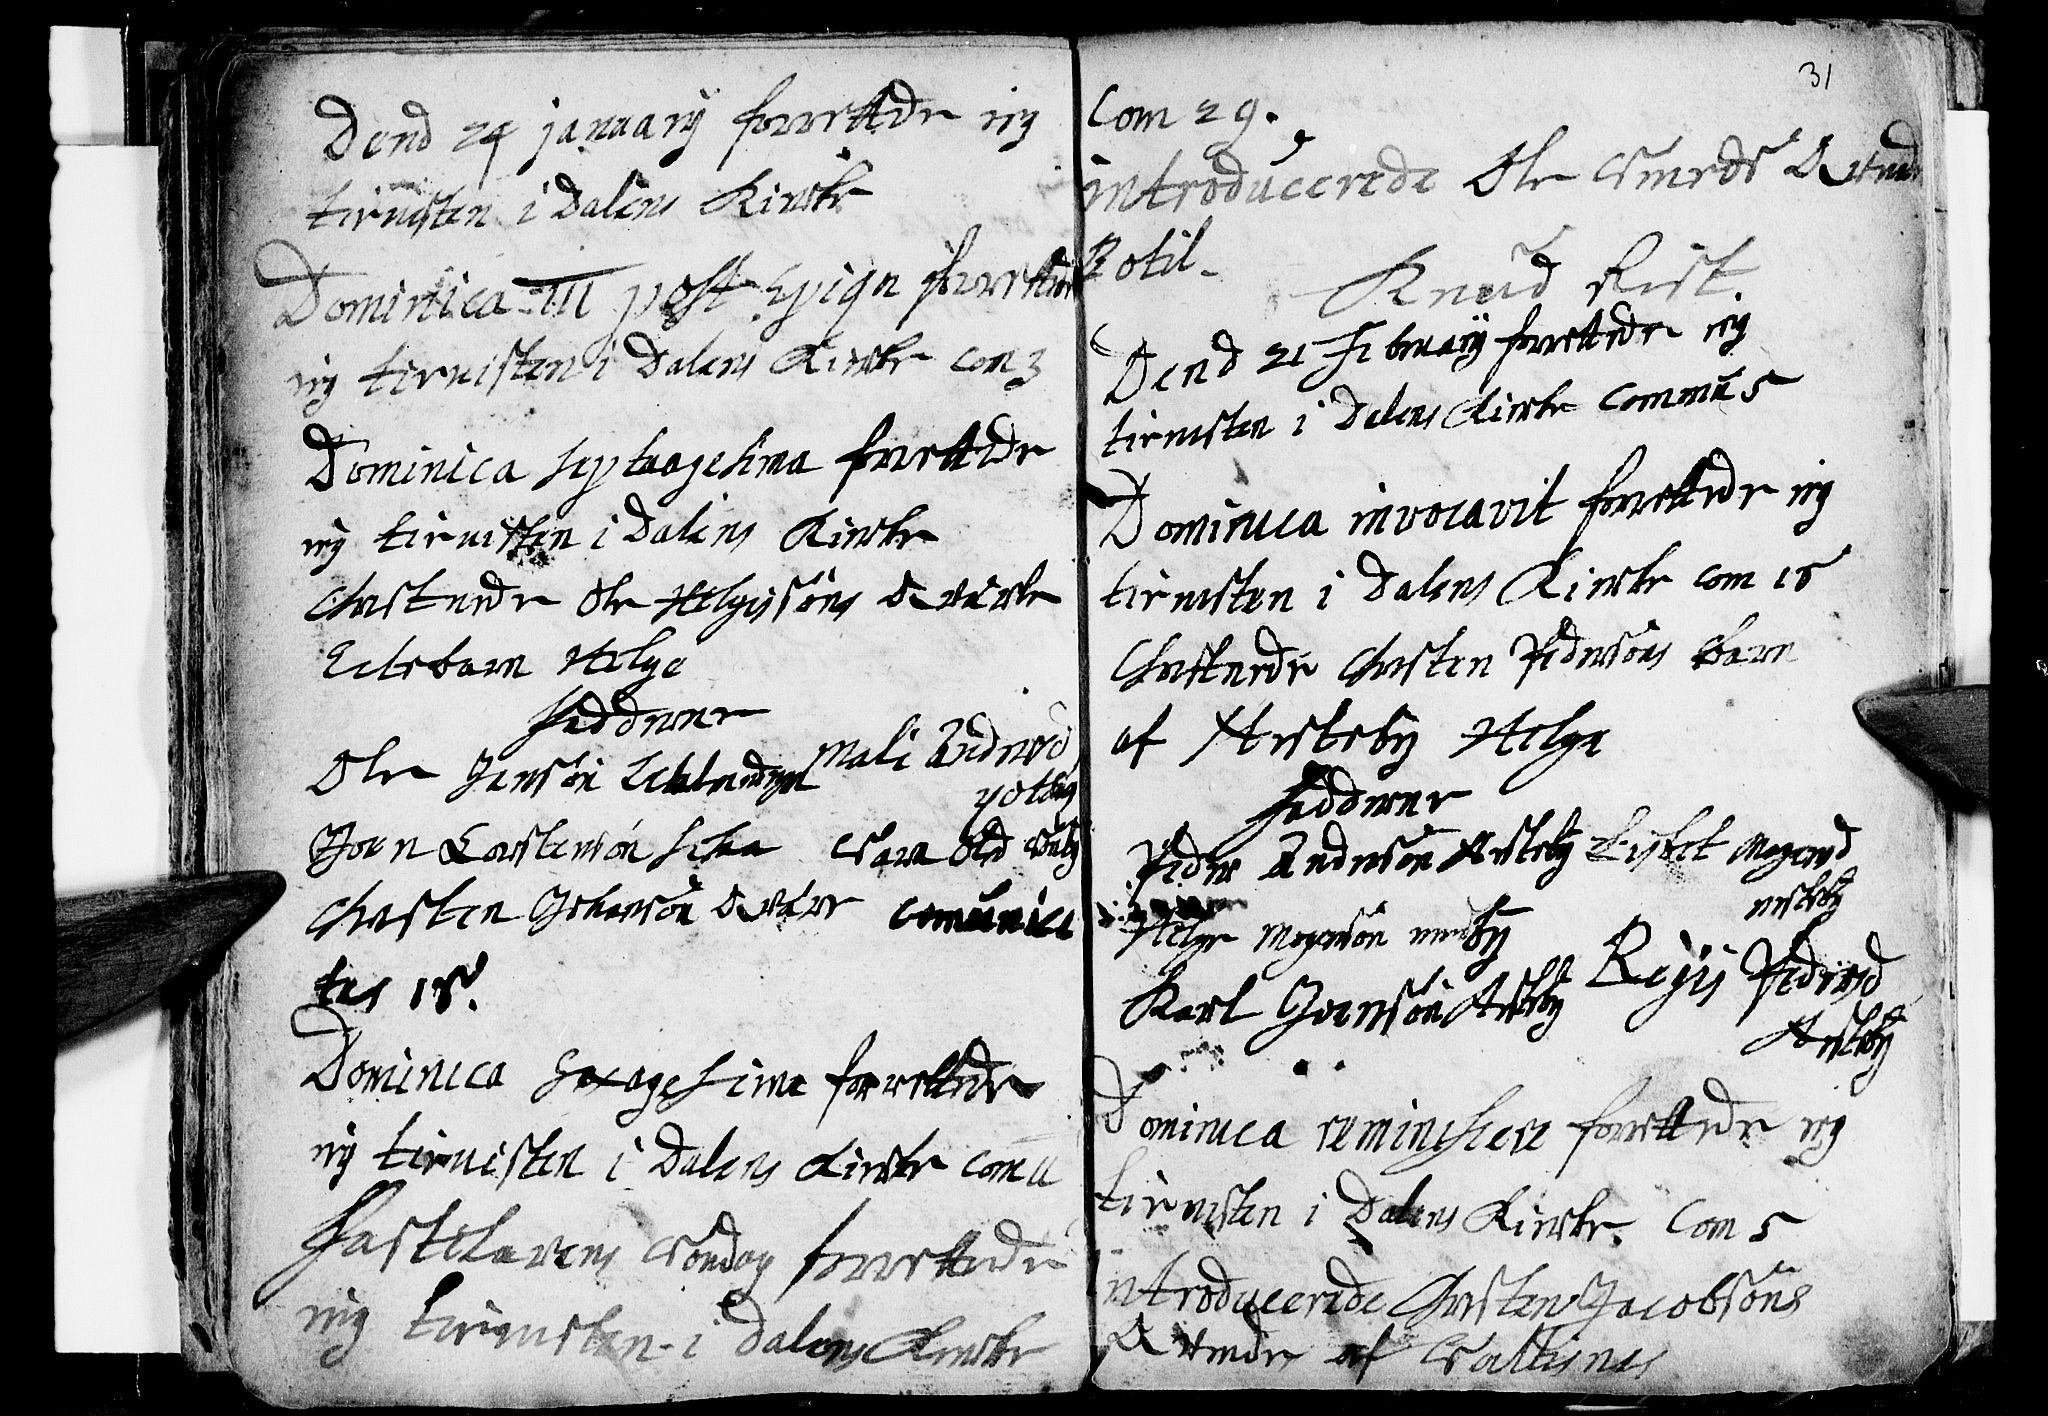 Dend 24 january forrettede ieg
tienisten i Dalens Kircke
Dominica III post Epiga forrettede
ieg tienisten i Dalens Kircke com 3
Dominica septuagesima forrettede
ieg tienisten i Dalens Kircke
Christnede Ole Helgesöns
Ectebarn Helge
Fadderne
Ole Jensön Mali Andersd
Joen Torstensön Sara Olsd
Christen Johansön comunica
tes 15.
Dominica Sexagesima forrettede
ieg tienisten i Dalens Kircke com 11
Fastelavens Söndag forrettede
ieg tienisten i Dalens Kircke
31
Com 29.
introducerede Ole Smeds Qvinde
Botil
Knud Rist
Dend 21 February forrettede ieg
tienisten i Dalens Kircke Commu 5
Dominica invocavit forrettede ieg
tienisten i Dalens Kircke com 15
Christnede Christen Pedersöns Barn
af Helge
Fadderne
Peder Andersön Lisbet Mogensd
Helge Mogensön
Karl Joensön Pedersd
Dominica reminiscere forrettede ieg
tienisten i Dalens Kircke. Com 5
introducerede Christen Jacobsöns
Qvinde af